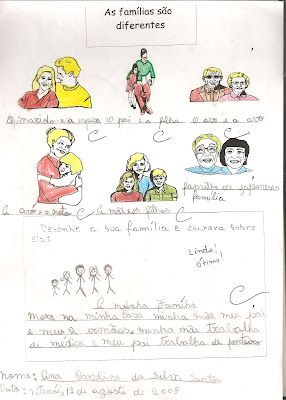 As famílias são
diferentes
O marido e a esposa O pai e a filha O avo e a avo
C C C
A avo e a neta A mãe e os filhos família de japoneses
família
C C C
Desenhe a sua família e escreva sobre
ela:
Lindo!
Ótimo!
A minha família
C
Mora na minha casa minha mãe meu pai
e meus 2 irmãos minha mãe trabalha
de médica e meu pai trabalha de porteiro
Nome: Ana Carolina da Silva Santos
Data: Niterói, 12 de agosto de 2008